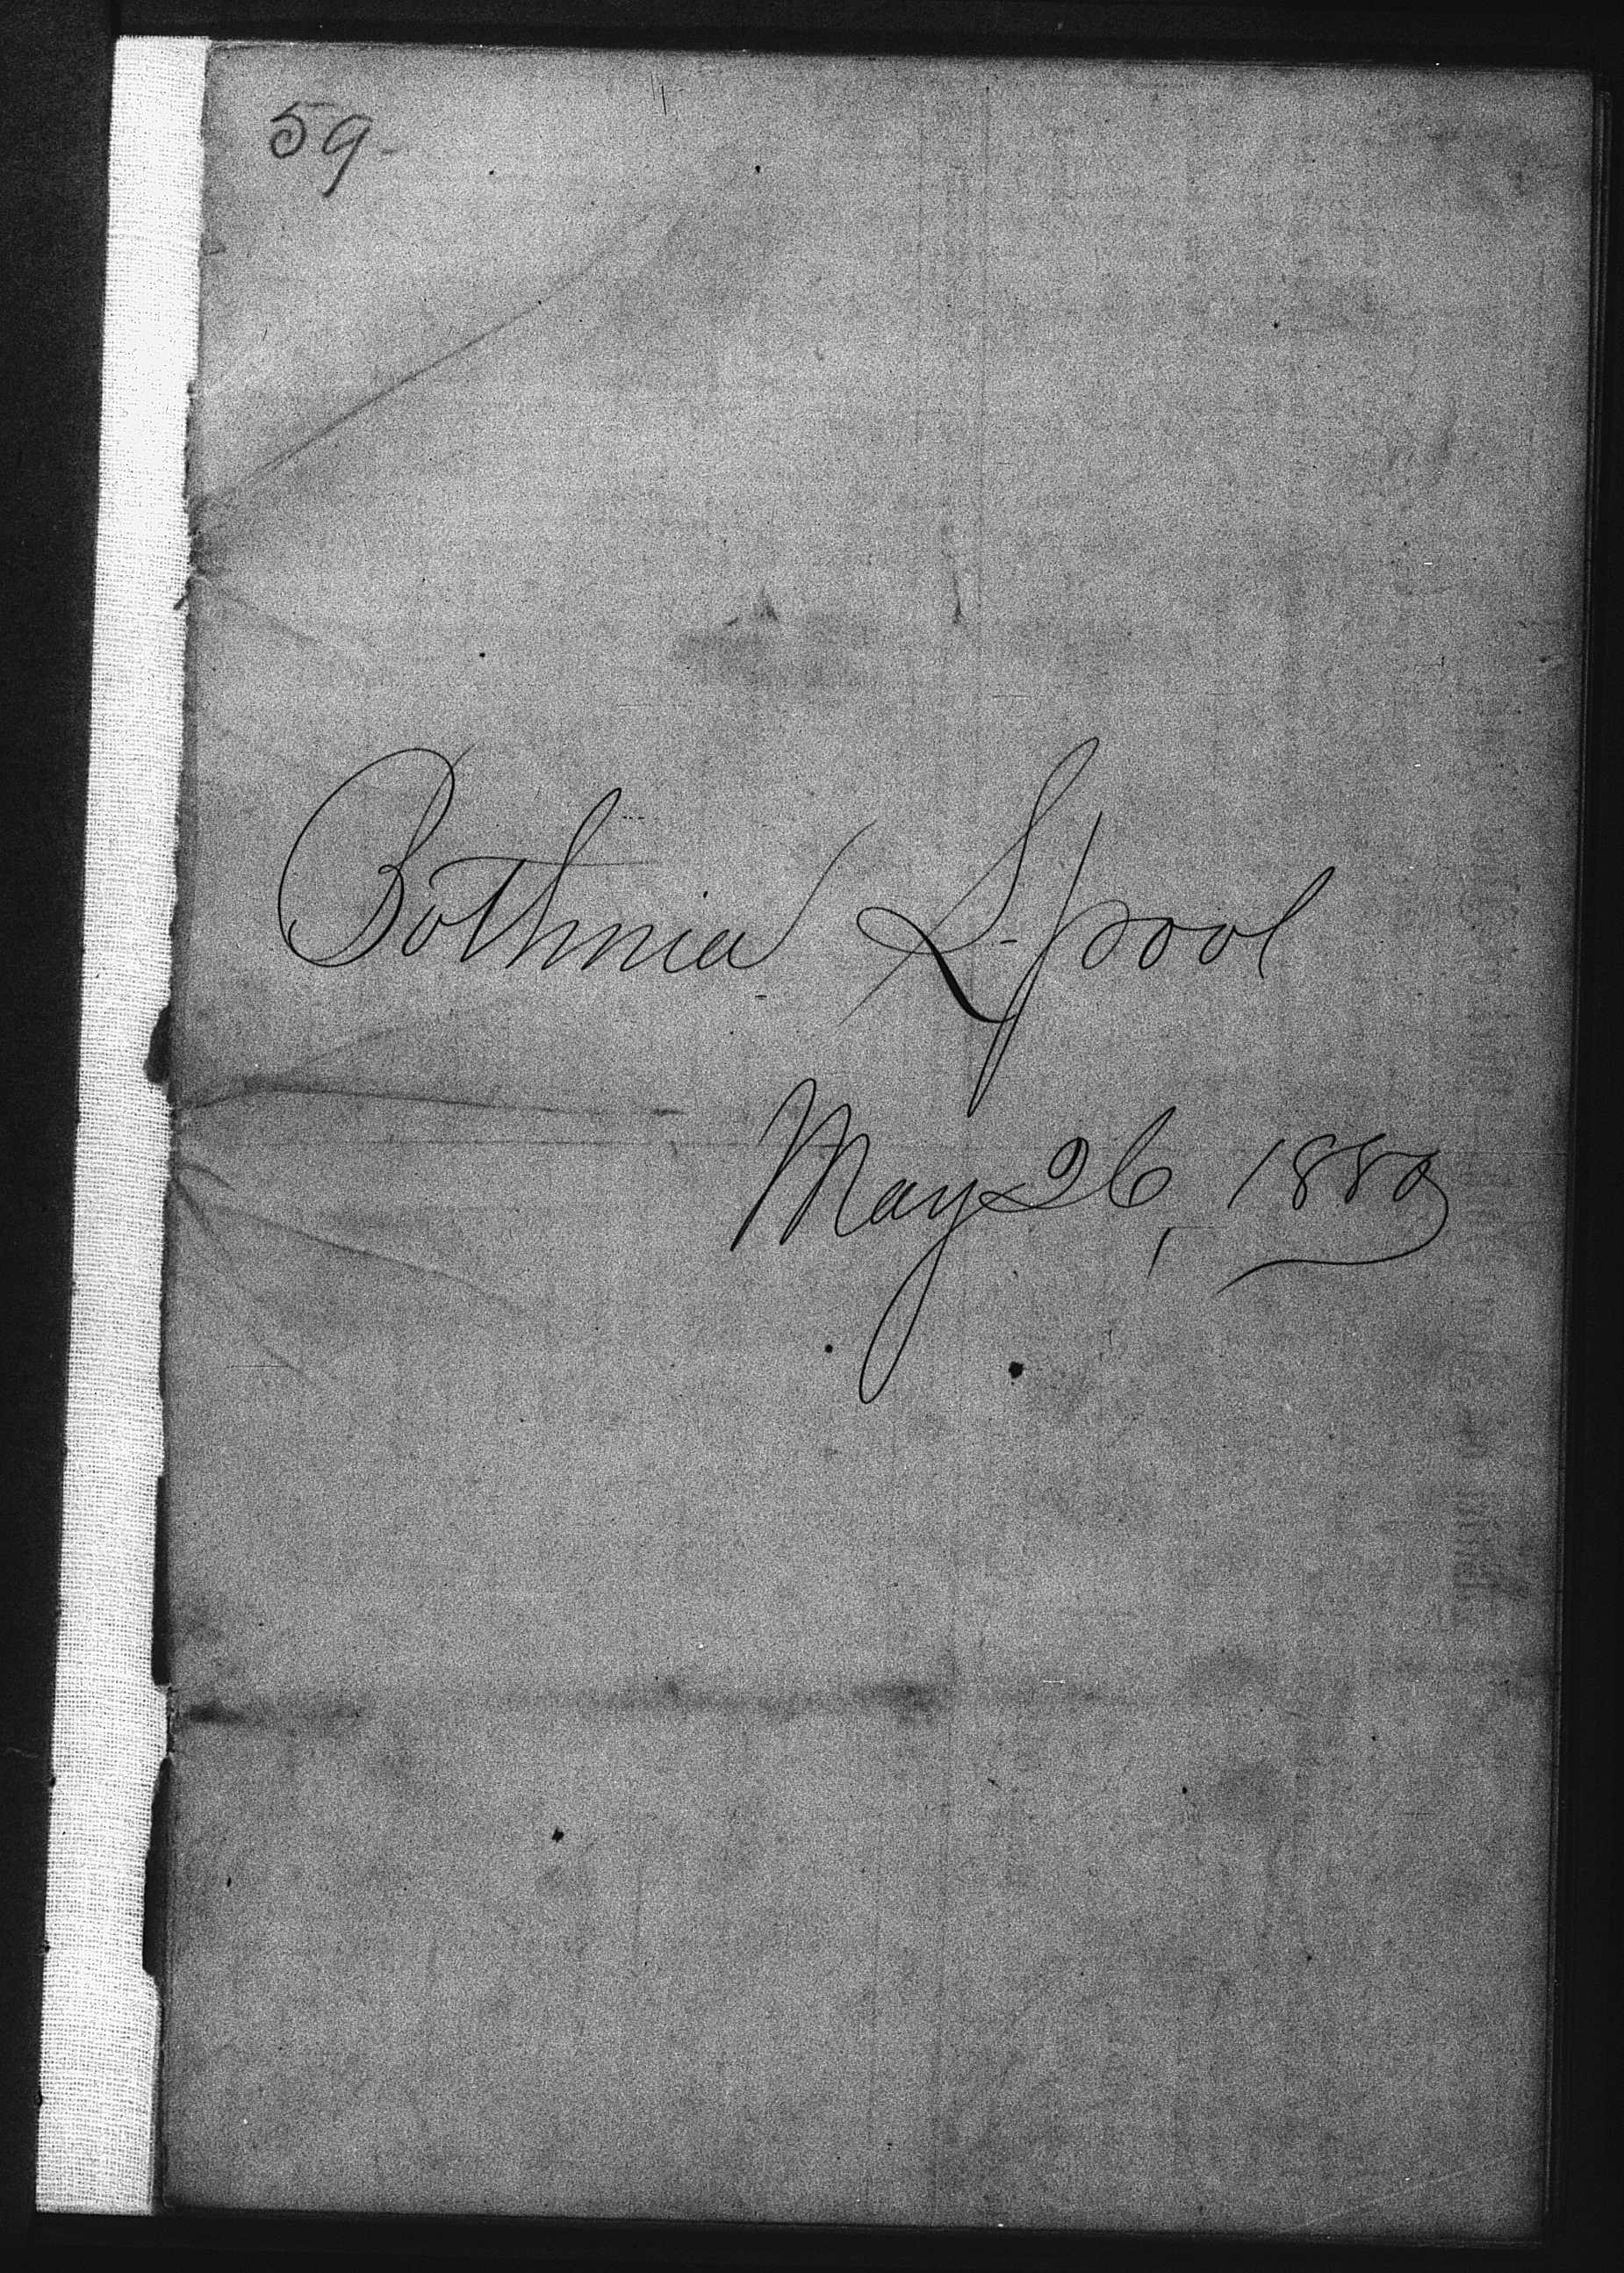 59-
Bothnia L-pool
May 26, 1880